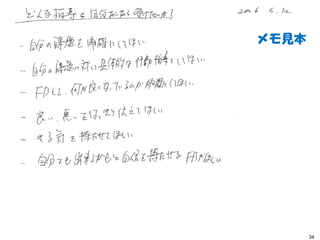 どんな指導を自分だったら受けたいか? 2016 6.12
メモ見本
- 自分の課題を明確にしてほしい
- 自分の課題に対し具体的な行動指導をしてほしい
- FBして、何が良くなっているのか明確にしてほしい
- 良い、悪いをはっきり伝えてほしい
- やる気を持たせてほしい
- 自分でも出来るかもと自信を持たせるFBがほしい
34